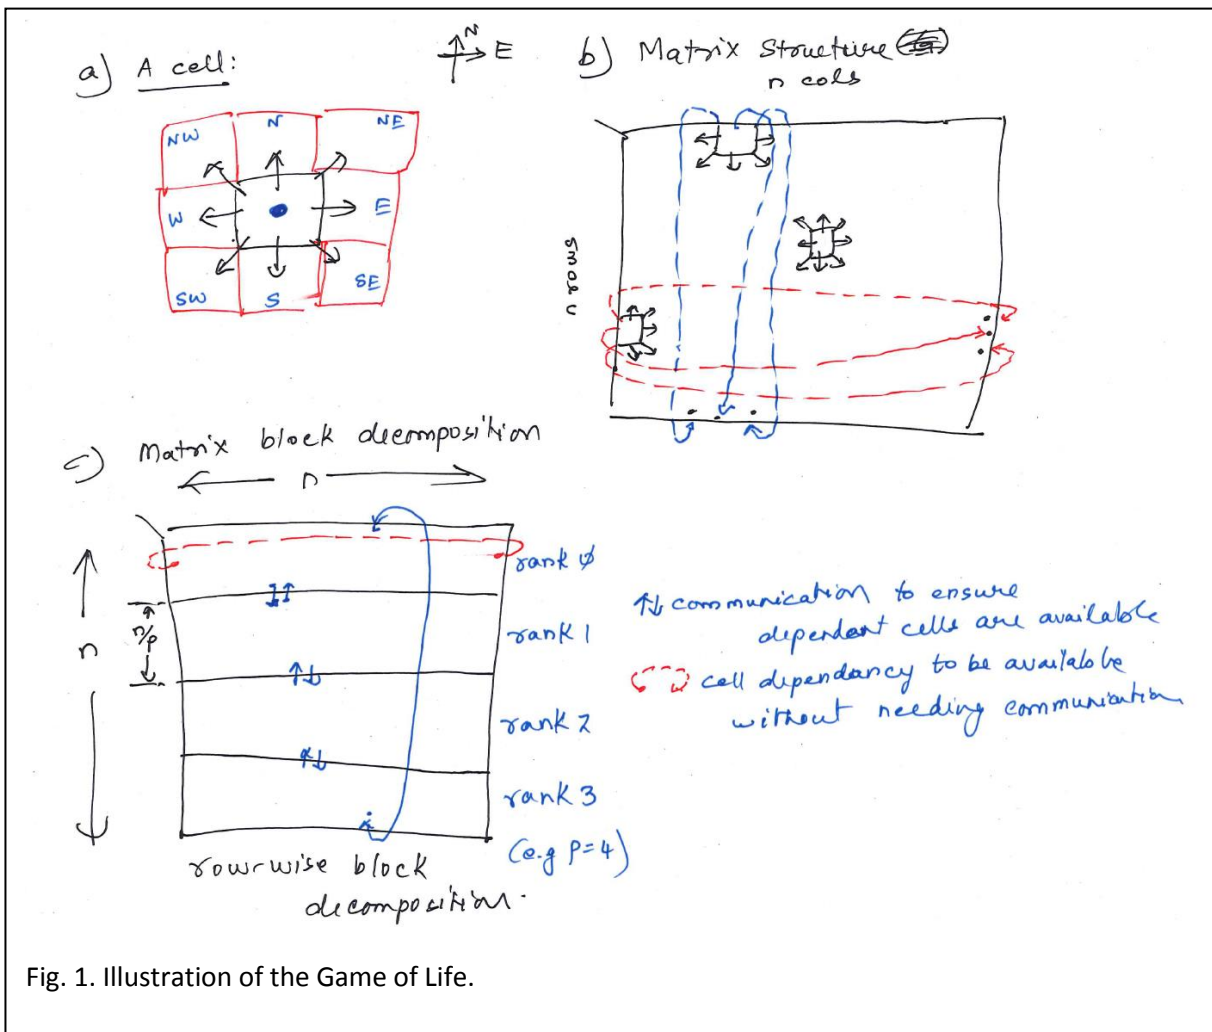 a) A cell:
N
E
NW
N
NE
W
E
SW
S
SE
b) Matrix Structure
n cols
n rows
c) Matrix block decomposition
n
n
n/p
rank 0
rank 1
rank 2
rank 3
(e.g P=4)
row-wise block
decomposition.
↑↓ communication to ensure
dependent cells are available
cell dependancy to be availabe
without needing communication
Fig. 1. Illustration of the Game of Life.